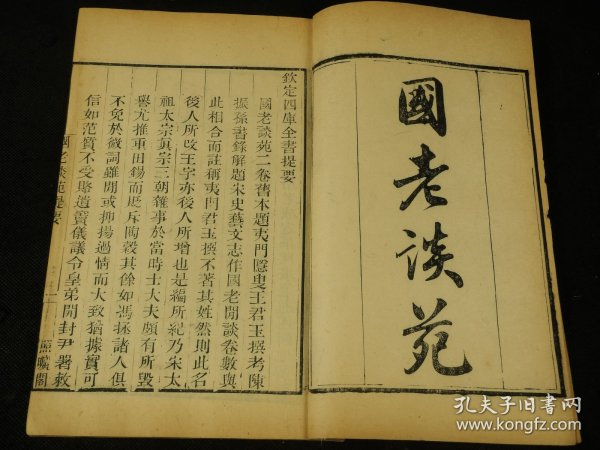 國老談苑
欽定四庫全書提要
國老談苑二卷舊本題夷門隱叟王君玉撰考陳
振孫書錄解題宋史藝文志作國老閒談卷數與
此相合而註稱夷門君玉撰不著其姓然則此名
後人所改王字亦後人所增也是編所紀乃宋太
祖太宗真宗三朝雜事於當時士大夫頗有所毀
譽尤推重田錫而貶斥陶穀其餘如馮拯諸人俱
不免於微詞雖間或抑揚過情而大致猶據實可
信如范質不受賂遺竇儀議令皇弟開封尹署敕
國老談苑提要
一
照曠閣
孔夫子旧书网
www.kongfz.com